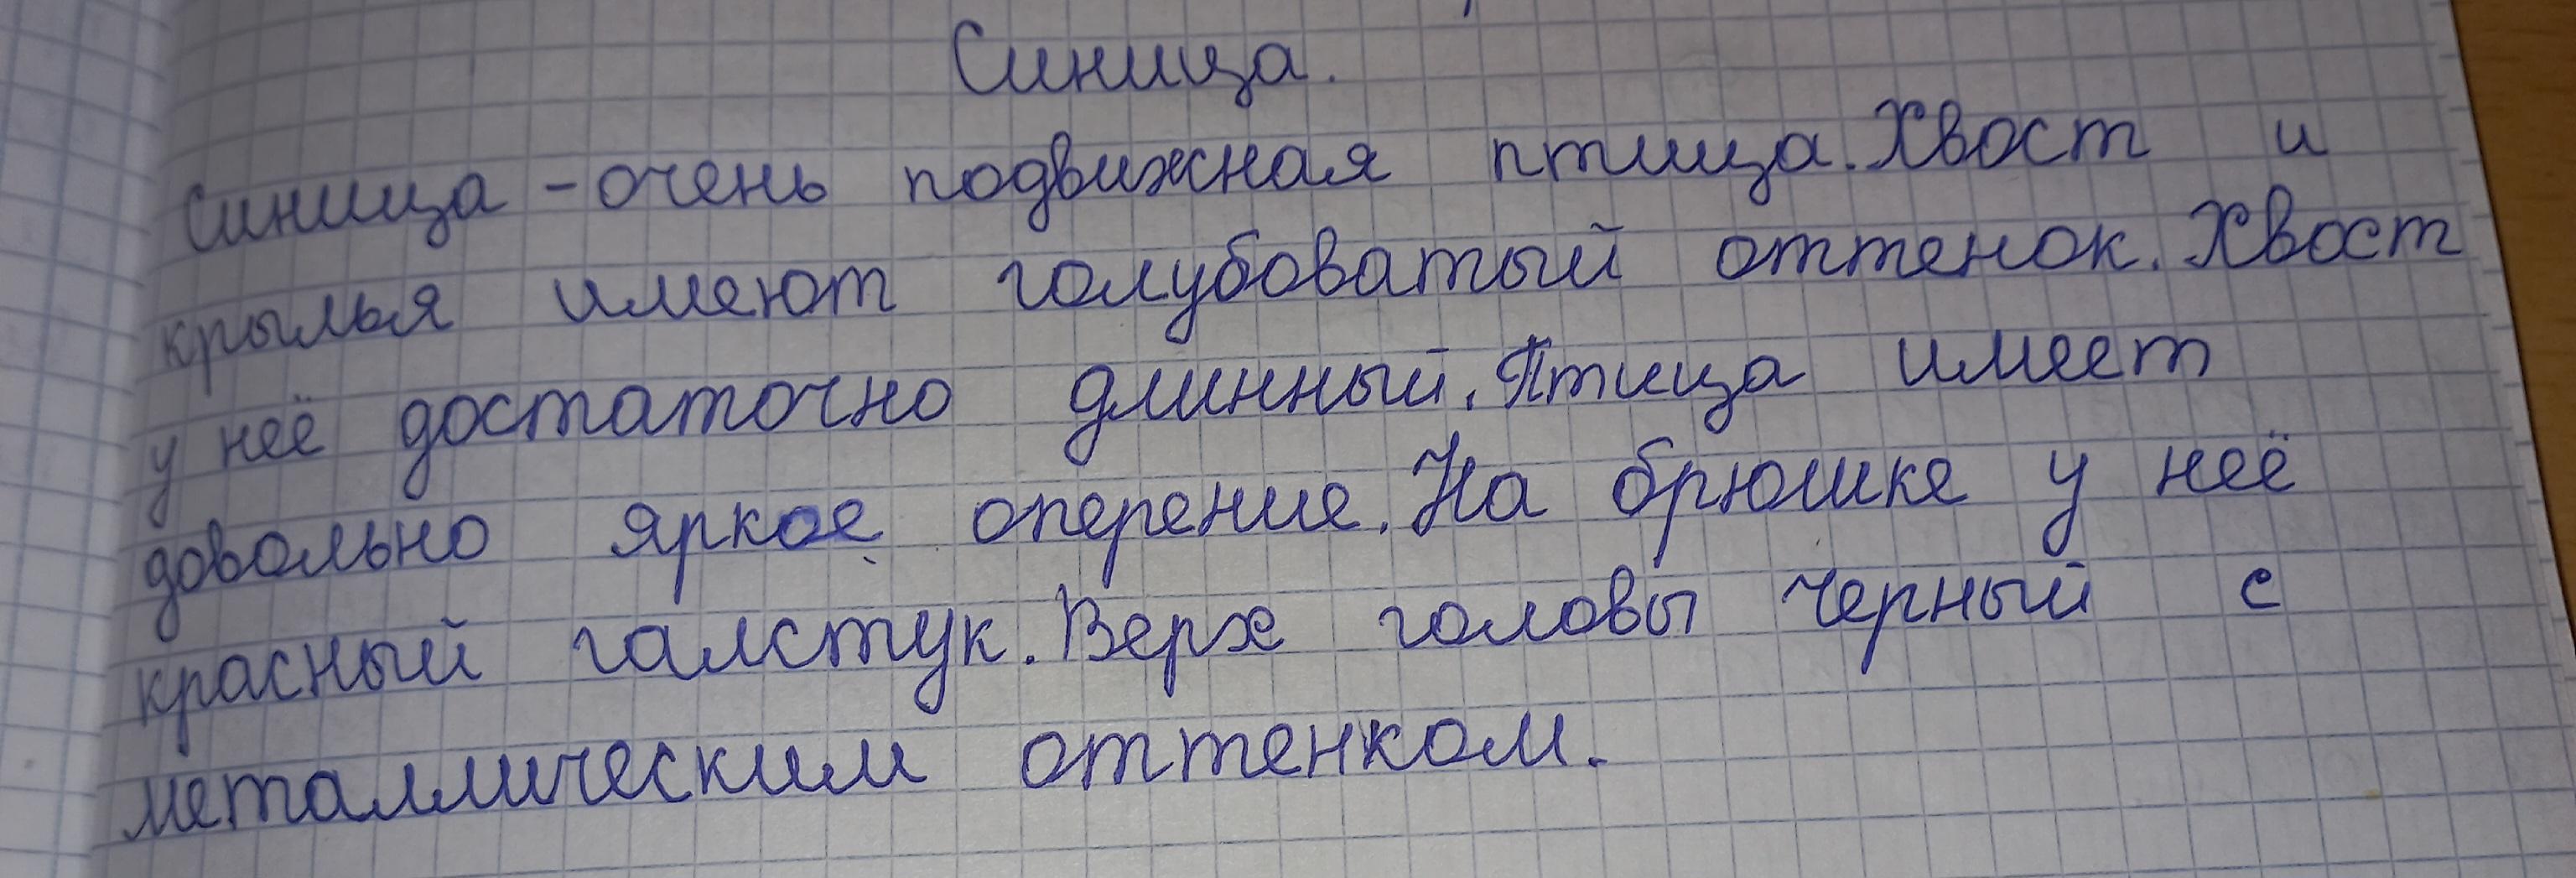 Синица.
Синица - очень подвижная птица. Хвост и
крылья имеют голубоватый оттенок. Хвост
у неё достаточно длинный. Птица имеет
довольно яркое оперение. На брюшке у неё
красный галстук. Верх головы черный с
металлическим оттенком.